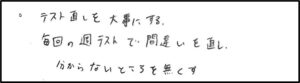 。テスト直しを大事にする。
毎回の週テストで間違いを直し、
分からないところを無くす